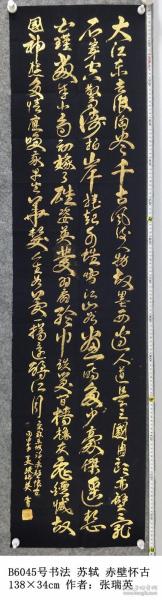 大江东去浪淘尽千古风流人物故垒西边人道是三国周郎赤壁乱
石穿空惊涛拍岸卷起千堆雪江山如画一时多少豪杰遥想
公瑾当年小乔初嫁了雄姿英发羽扇纶巾谈笑间樯橹灰飞烟灭故
国神游多情应笑我早生华发人生如梦一樽还酹江月
B6045号书法 苏轼 赤壁怀古
138×34cm 作者：张瑞英